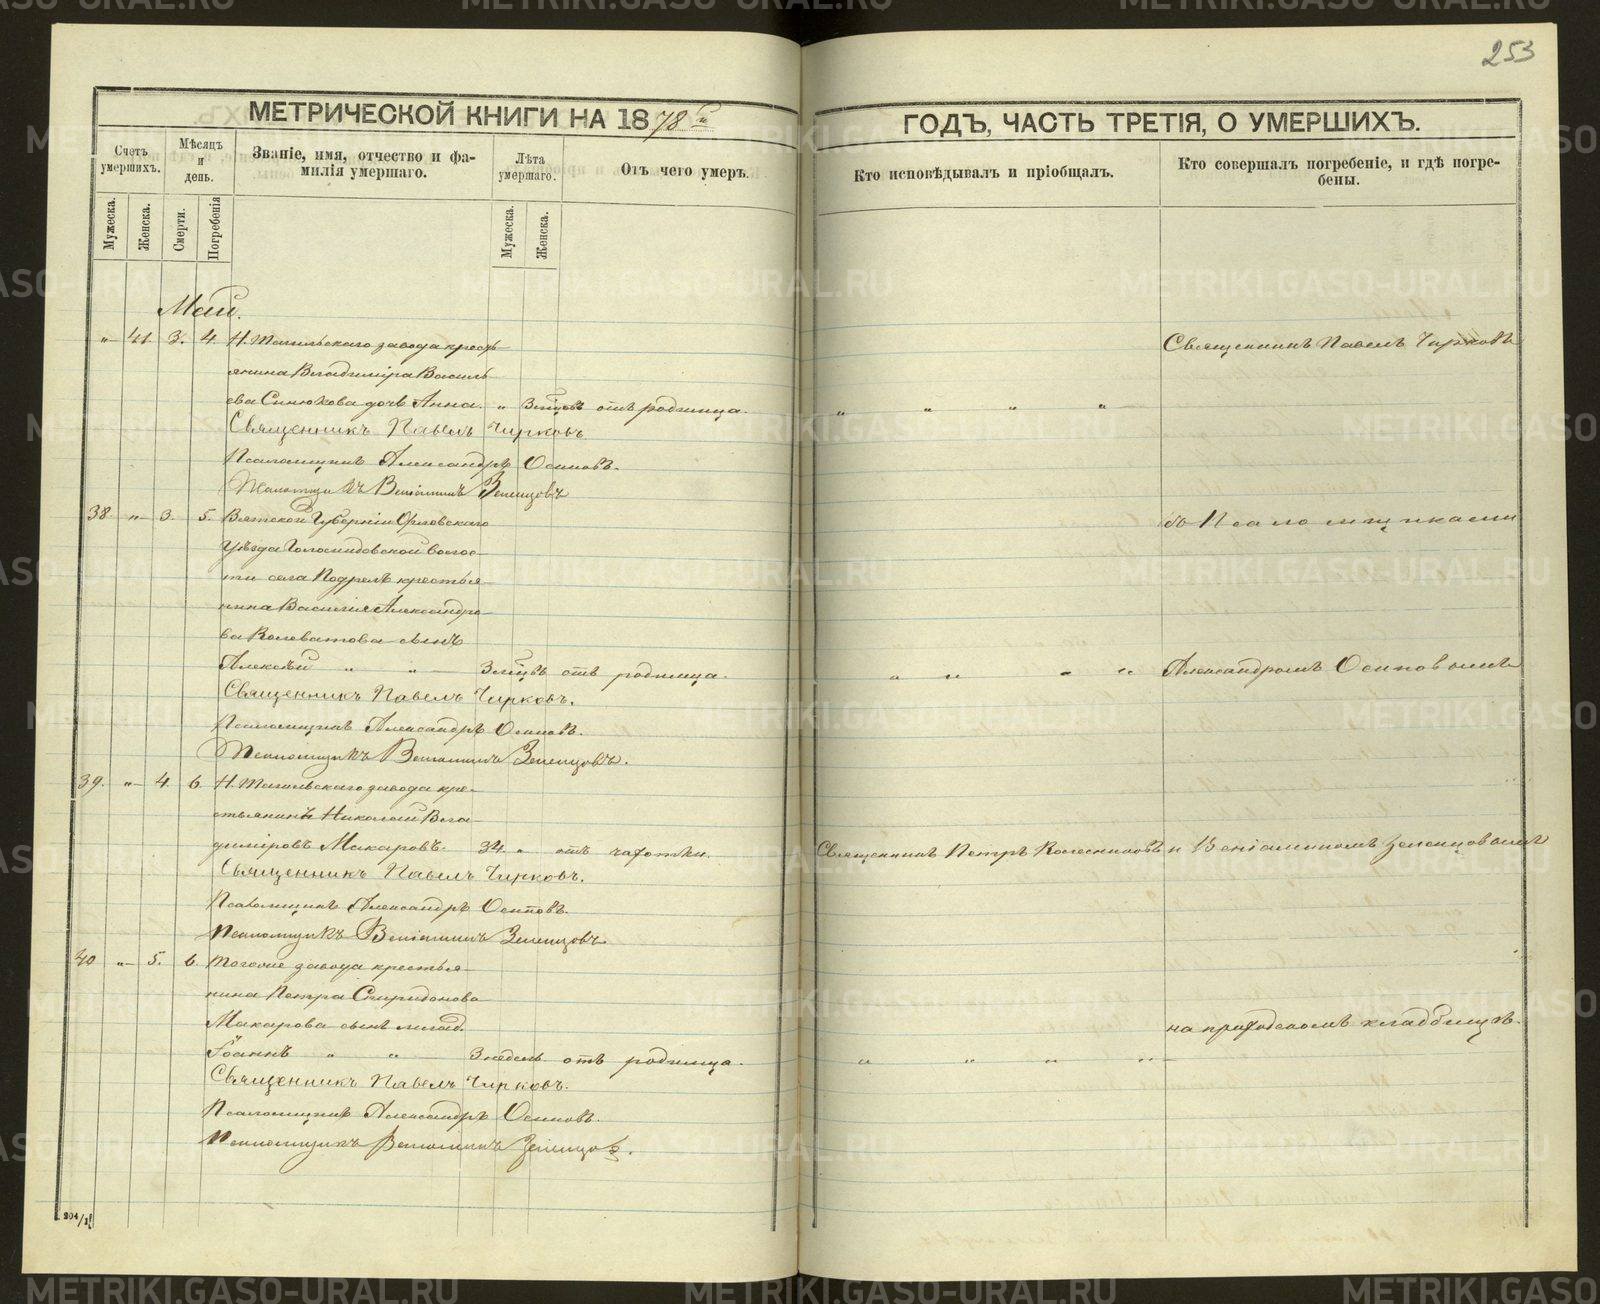 253
МЕТРИЧЕСКОЙ КНИГИ НА 1878й
ГОДЪ, ЧАСТЬ ТРЕТІЯ, О УМЕРШИХЪ.
Счетъ умершихъ.
Мѣсяцъ и день.
Званіе, имя, отчество и фамилія умершаго.
Лѣта умершаго.
Отъ чего умеръ.
Кто исповѣдывалъ и пріобщалъ.
Кто совершалъ погребеніе, и гдѣ погребены.
Мужеска.
Женска.
Смерти.
Погребенія
Мужеска.
Женска.
Май.
„ 41. 3. 4. Н. Тагильскаго завода кресть
Священникъ Павелъ Чирковъ
янина Владиміра Василь
ева Синюкова дочь Анна. „ отъ родимца. „ „ „ „
Священникъ Павелъ Чирковъ
Псаломщикъ Александръ Осиповъ.
Псаломщикъ Веніаминъ Зеленцовъ
38. „ 3. 5. Вятской Губерніи Орловскаго
съ Псаломщиками
Уѣзда волос-
ти села крестья-
нина Василія Александро-
ва сынъ
Алексѣй „ „ отъ родимца. „ „ „ „ Александромъ Осиповымъ
Священникъ Павелъ Чирковъ.
Псаломщикъ Александръ Осиповъ.
Псаломщикъ Веніаминъ Зеленцовъ.
39. „ 4. 6. Н. Тагильскаго завода кре-
стьянинъ Николай Вла-
диміровъ Макаровъ. 34. „ отъ чахотки. Священникъ Петръ Колесниковъ и Веніаминомъ Зеленцовымъ
Священникъ Павелъ Чирковъ.
Псаломщикъ Александръ Осиповъ.
Псаломщикъ Веніаминъ Зеленцовъ
40 „ 5. 6. Тогоже завода крестья-
нина Петра Спиридонова
Макарова сынъ
на приходскомъ кладбищѣ.
Іоаннъ „ „ 3 недель отъ родимца. „ „ „ „
Священникъ Павелъ Чирковъ.
Псаломщикъ Александръ Осиповъ.
Псаломщикъ Веніаминъ Зеленцовъ.
204/1
METRIKI.GASO-URAL.RU